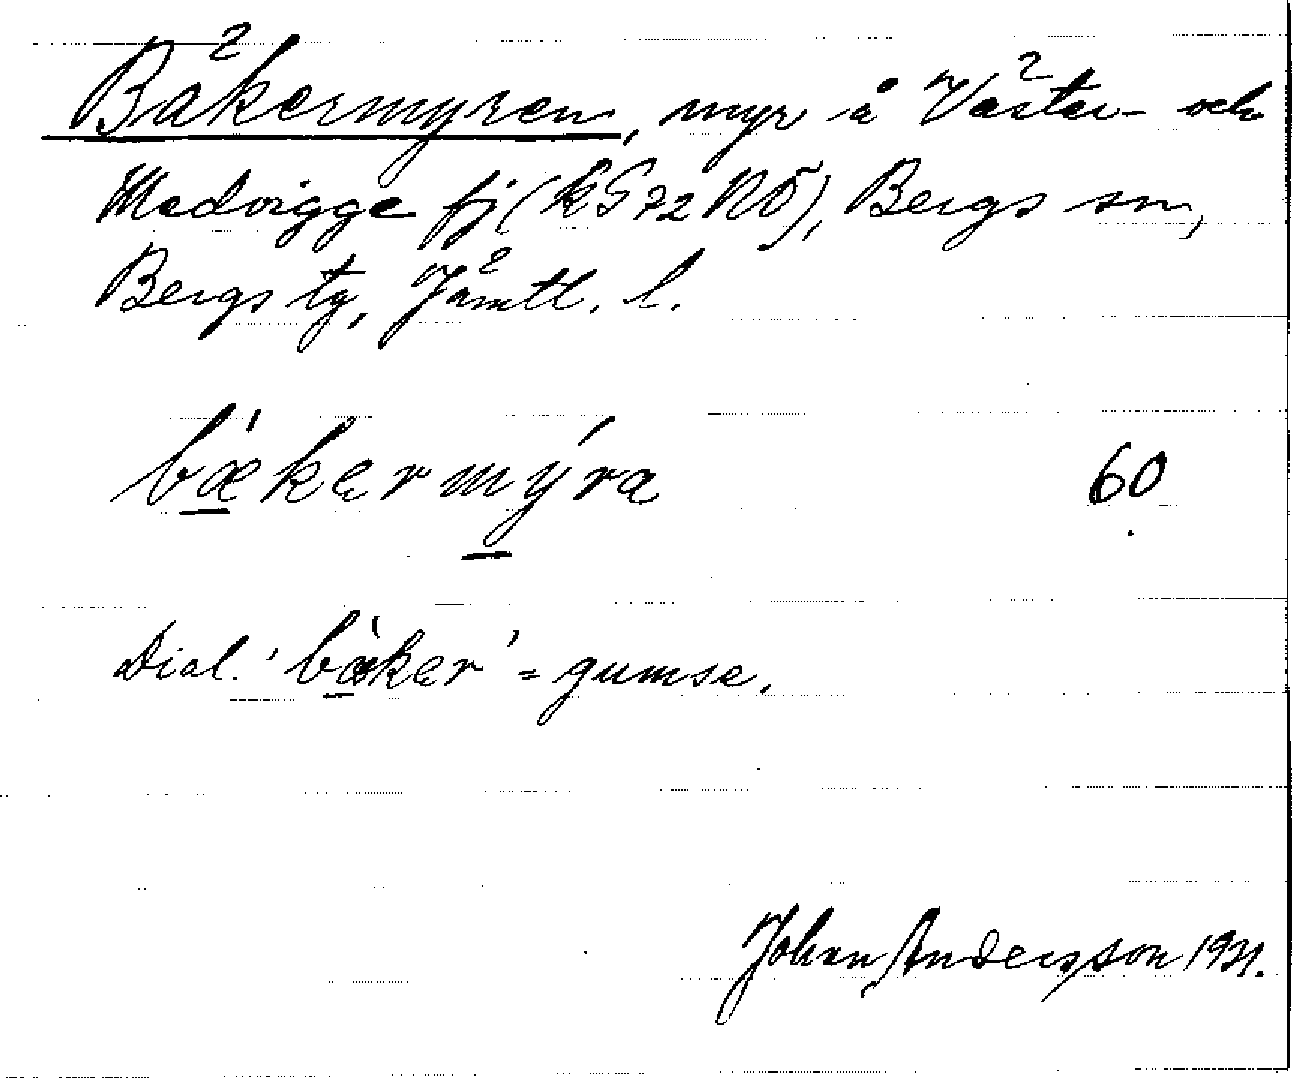 Bäkermyren, myr å Väster- och
Medvigge fj (kG 72 NÖ), Bergs sn,
Bergs tg, Jämtl. l.
bækermýra 60
Dial. 'bæker' = gumse.
Johan Andersson 1931.